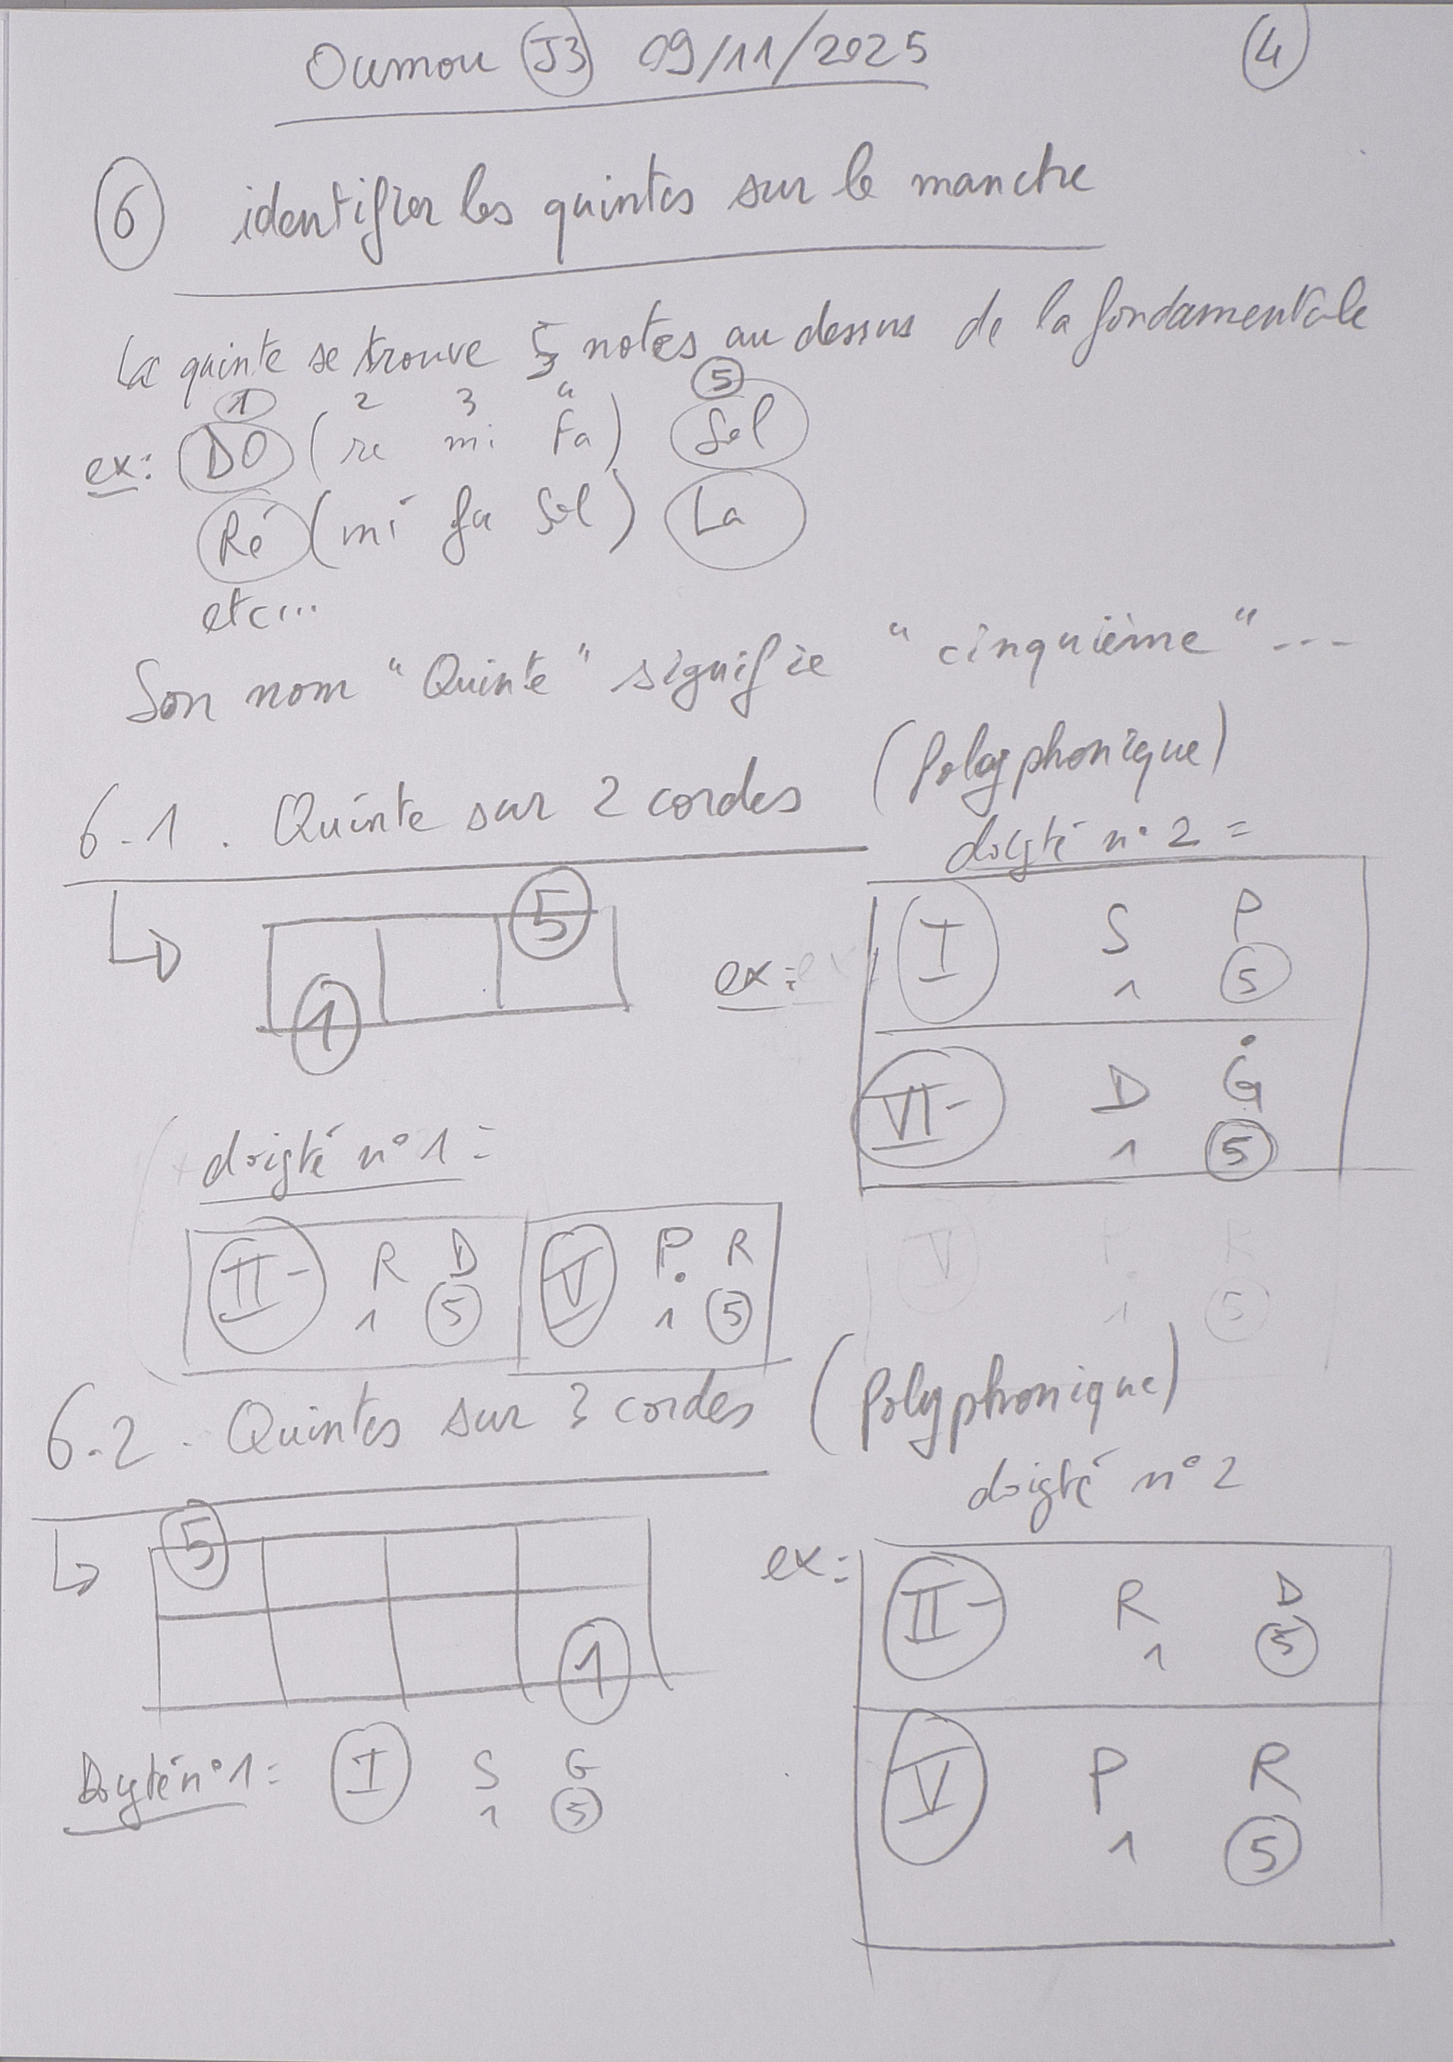 Oumou J3 09/11/2025 4
6 identifier les quintes sur le manche
La quinte se trouve 5 notes au dessus de la fondamentale
1 2 3 4 5
ex: DO (re mi Fa) Sol
Ré (mi fa Sol) La
etc...
Son nom "Quinte" signifie "cinquième" ...
6-1. Quinte sur 2 cordes (Polyphonique)
doigté n°2 =
5
1
ex:
I S P
1 5
VI- D G
1 5
doigté n°1 =
II- R D
1 5
V P R
1 5
6-2. Quintes sur 3 cordes (Polyphonique)
doigté n°2
5
1
ex:
II- R D
1 5
V P R
1 5
Doigté n°1 = I S G
1 5